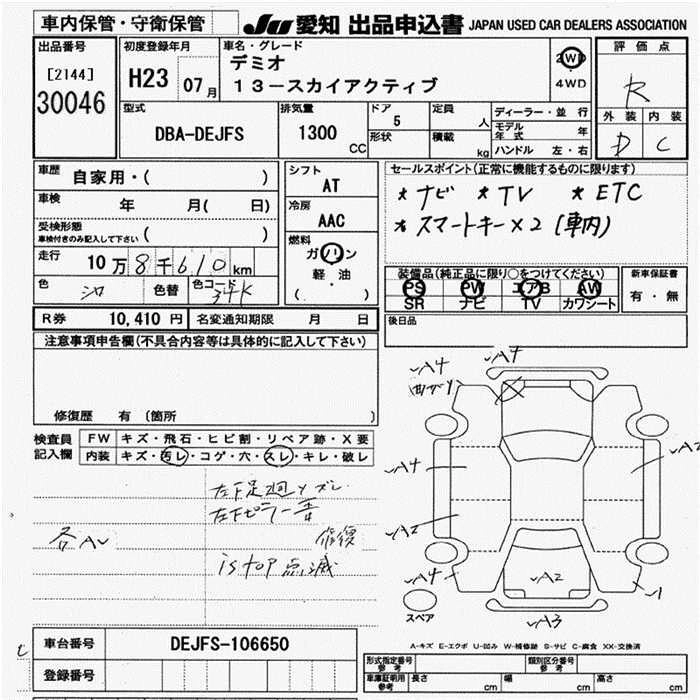 車内保管・守衛保管
JU 愛知 出品申込書 JAPAN USED CAR DEALERS ASSOCIATION
出品番号
[2144]
30046
初度登録年月
H23 07月
車名・グレード
デミオ
13-スカイアクティブ
2WD
4WD
評価点
R
外装 内装
D C
型式
DBA-DEJFS
排気量
1300
CC
ドア
5
形状
定員
人
積載
kg
ディーラー・並行
モデル年式 年
ハンドル 左・右
車歴
自家用・( )
車検
年 月( 日)
受検形態
車検付きのみ記入して下さい ( )
走行
10万8千610km
色
シロ
色替
色コード
34K
シフト
AT
冷房
AAC
燃料
ガソリン
軽・油
( )
セールスポイント(正常に機能するものに限ります)
* ナビ * TV * ETC
* スマートキー×2 (車内)
装備品(純正品に限り○をつけてください)
PS PW エアB AW
SR ナビ TV カワシート
新車保証書
有・無
後日品
R券 10,410 円
名変通知期限 月 日
注意事項申告欄(不具合内容等は具体的に記入して下さい)
修復歴 有 〔箇所 〕
検査員
記入欄
FW キズ・飛石・ヒビ割・リペア跡・X要
内装 キズ・汚レ・コゲ・穴・スレ・キレ・破レ
左下足廻りズレ
左下ピラー
修復
各AU
is top 点滅
A4
A4
曲がり
A4
A2
A2
A4
A2
A3
1
スペア
A-キズ E-エクボ U-凹み W-補修跡 S-サビ C-腐食 XX-交換済
車台番号
DEJFS-106650
登録番号
形式指定番号
参考
類別区分番号
参考
車庫証明用
参考
長さ cm 幅 cm 高さ cm